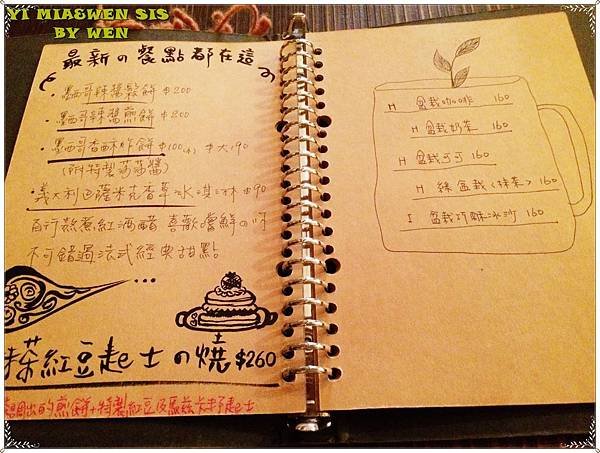 YI MIA&WEN SIS
BY WEN
最新の餐點都在這
・墨西哥辣醬鬆餅 $200
・墨西哥辣醬煎餅 $200
・墨西哥香酥炸餅 $100(小) $大190
(附特製莎莎醬)
・義大利巴薩米克香草冰淇淋 $90
百行熬煮紅酒醋 喜歡嚐鮮の你
不可錯過法式經典甜點
抹茶紅豆起士の燒 $260
的煎餅+特製紅豆及馬茲卡邦起士
H 盆栽咖啡 160
H 盆栽奶茶 160
H 盆栽可可 160
H 綠盆栽<抹茶> 160
I 盆栽巧酥冰沙 160